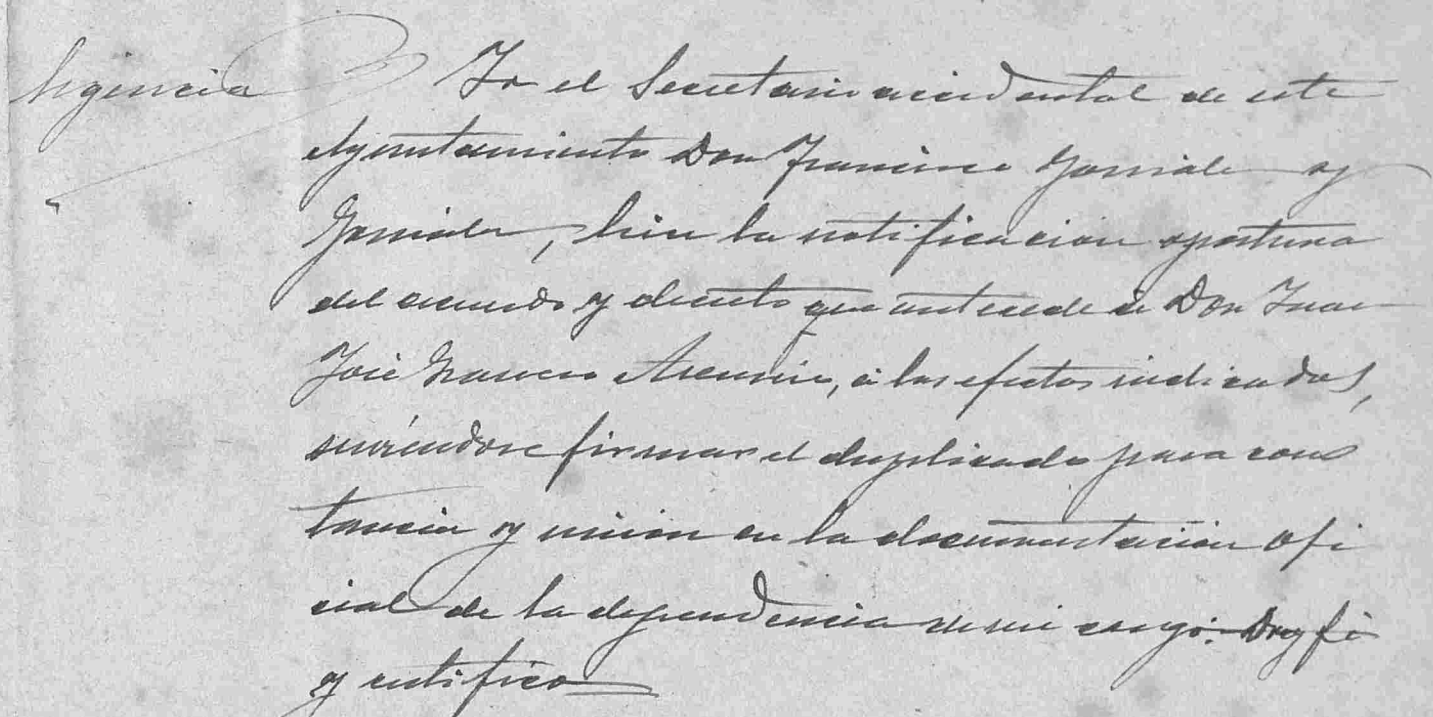 Diligencia
Yo el Secretario accidental de este
Ayuntamiento Don Francisco Gonzalez y
Gonzalez, hice la notificacion oportuna
del acuerdo y decreto que antecede á Don Juan
José Asensio, á los efectos indicados,
firmar el duplicado para cons
tancia y union en la documentación ofi
cial de la dependencia de mi cargo. Doy fé
y certifico